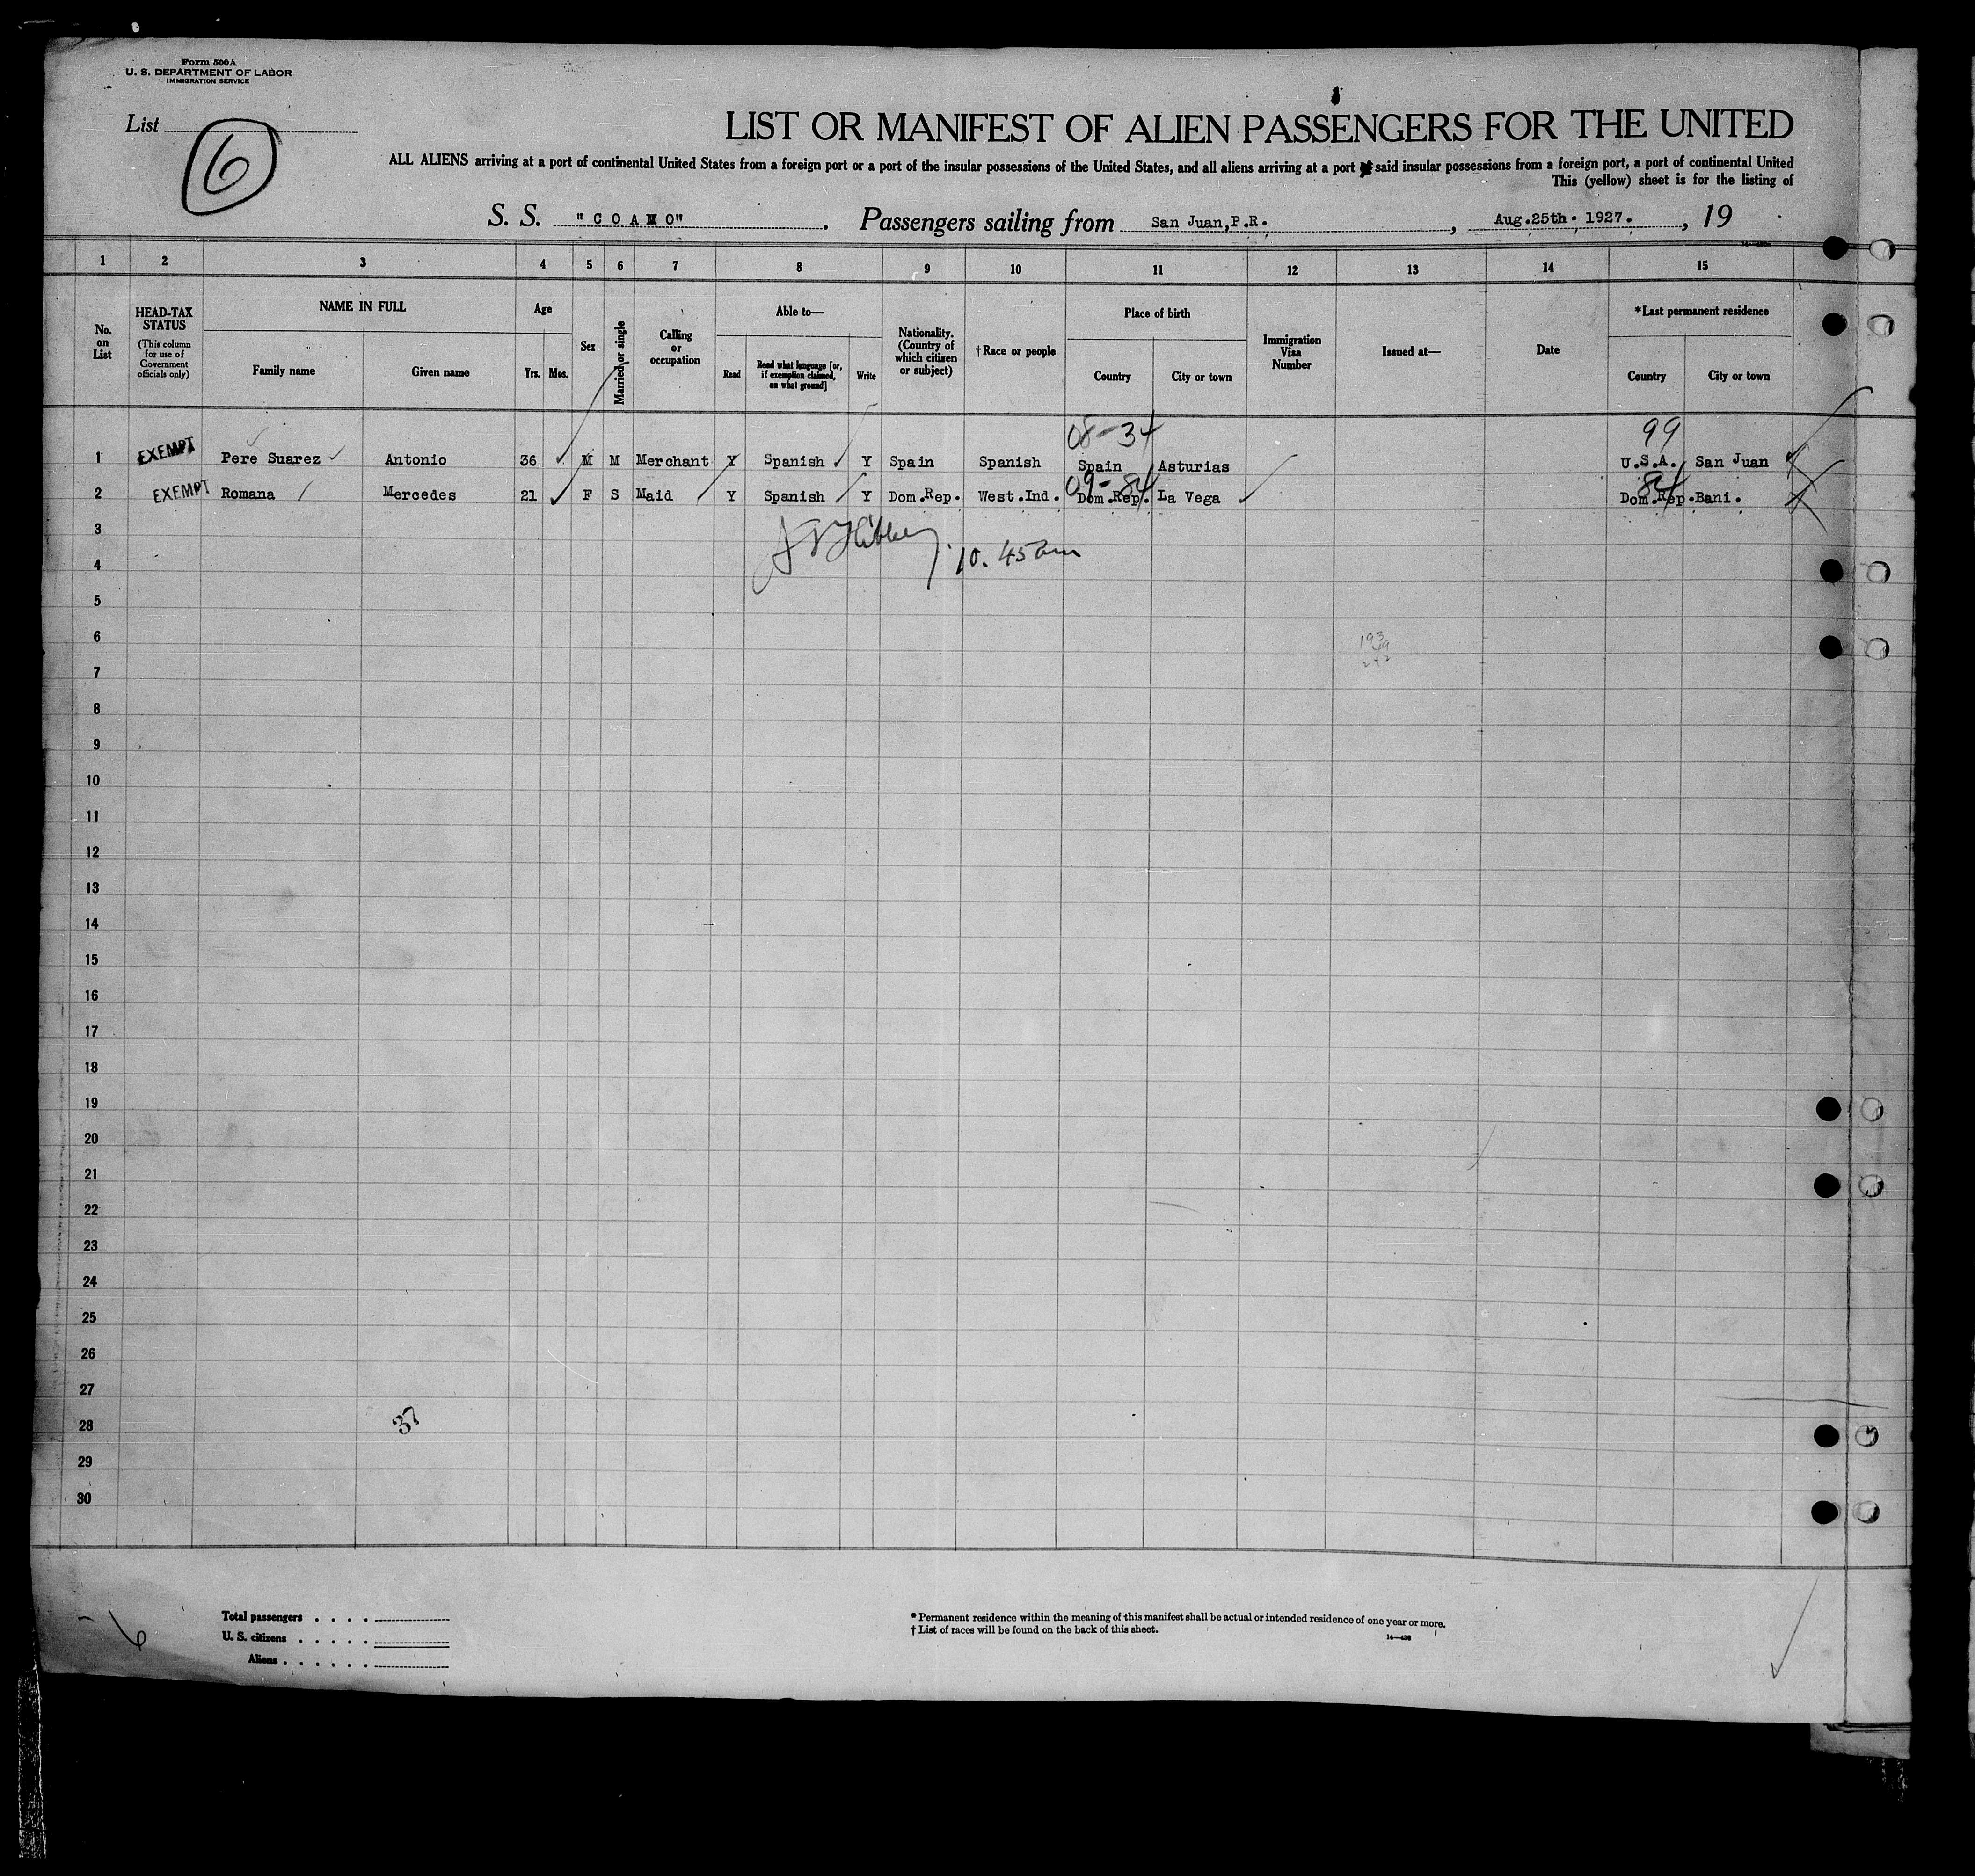 Form 500A
U. S. DEPARTMENT OF LABOR
IMMIGRATION SERVICE
List
6
LIST OR MANIFEST OF ALIEN PASSENGERS FOR THE UNITED
ALL ALIENS arriving at a port of continental United States from a foreign port or a port of the insular possessions of the United States, and all aliens arriving at a port said insular possessions from a foreign port, a port of continental United
This (yellow) sheet is for the listing of
S. S. "COAMO". Passengers sailing from San Juan,P.R., Aug.25th. 1927., 19
1 2 3 4 5 6 7 8 9 10 11 12 13 14 15
No. on List
HEAD-TAX STATUS (This column for use of Government officials only)
NAME IN FULL
Family name Given name
Age
Yrs. Mos.
Sex
Married or single
Calling or occupation
Able to—
Read
Read what language [or, if exemption claimed, on what ground]
Write
Nationality. (Country of which citizen or subject)
†Race or people
Place of birth
Country City or town
Immigration Visa Number
Issued at—
Date
*Last permanent residence
Country City or town
08-34 99
1 EXEMPT Pere Suarez Antonio 36 M M Merchant Y Spanish Y Spain Spanish Spain Asturias U.S.A. San Juan
09-84 84
2 EXEMPT Romana Mercedes 21 F S Maid Y Spanish Y Dom.Rep. West.Ind. Dom.Rep. La Vega Dom.Rep.Bani.
3
10.45am
4
5
6
7
8
9
10
11
12
13
14
15
16
17
18
19
20
21
22
23
24
25
26
27
28
37
29
30
Total passengers . . . .
U. S. citizens . . . . .
Aliens . . . . . .
6
* Permanent residence within the meaning of this manifest shall be actual or intended residence of one year or more.
† List of races will be found on the back of this sheet.